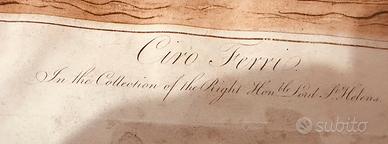 Ciro Ferri.
In the Collection of the Right Hon.ble Lord St. Helens.
subito